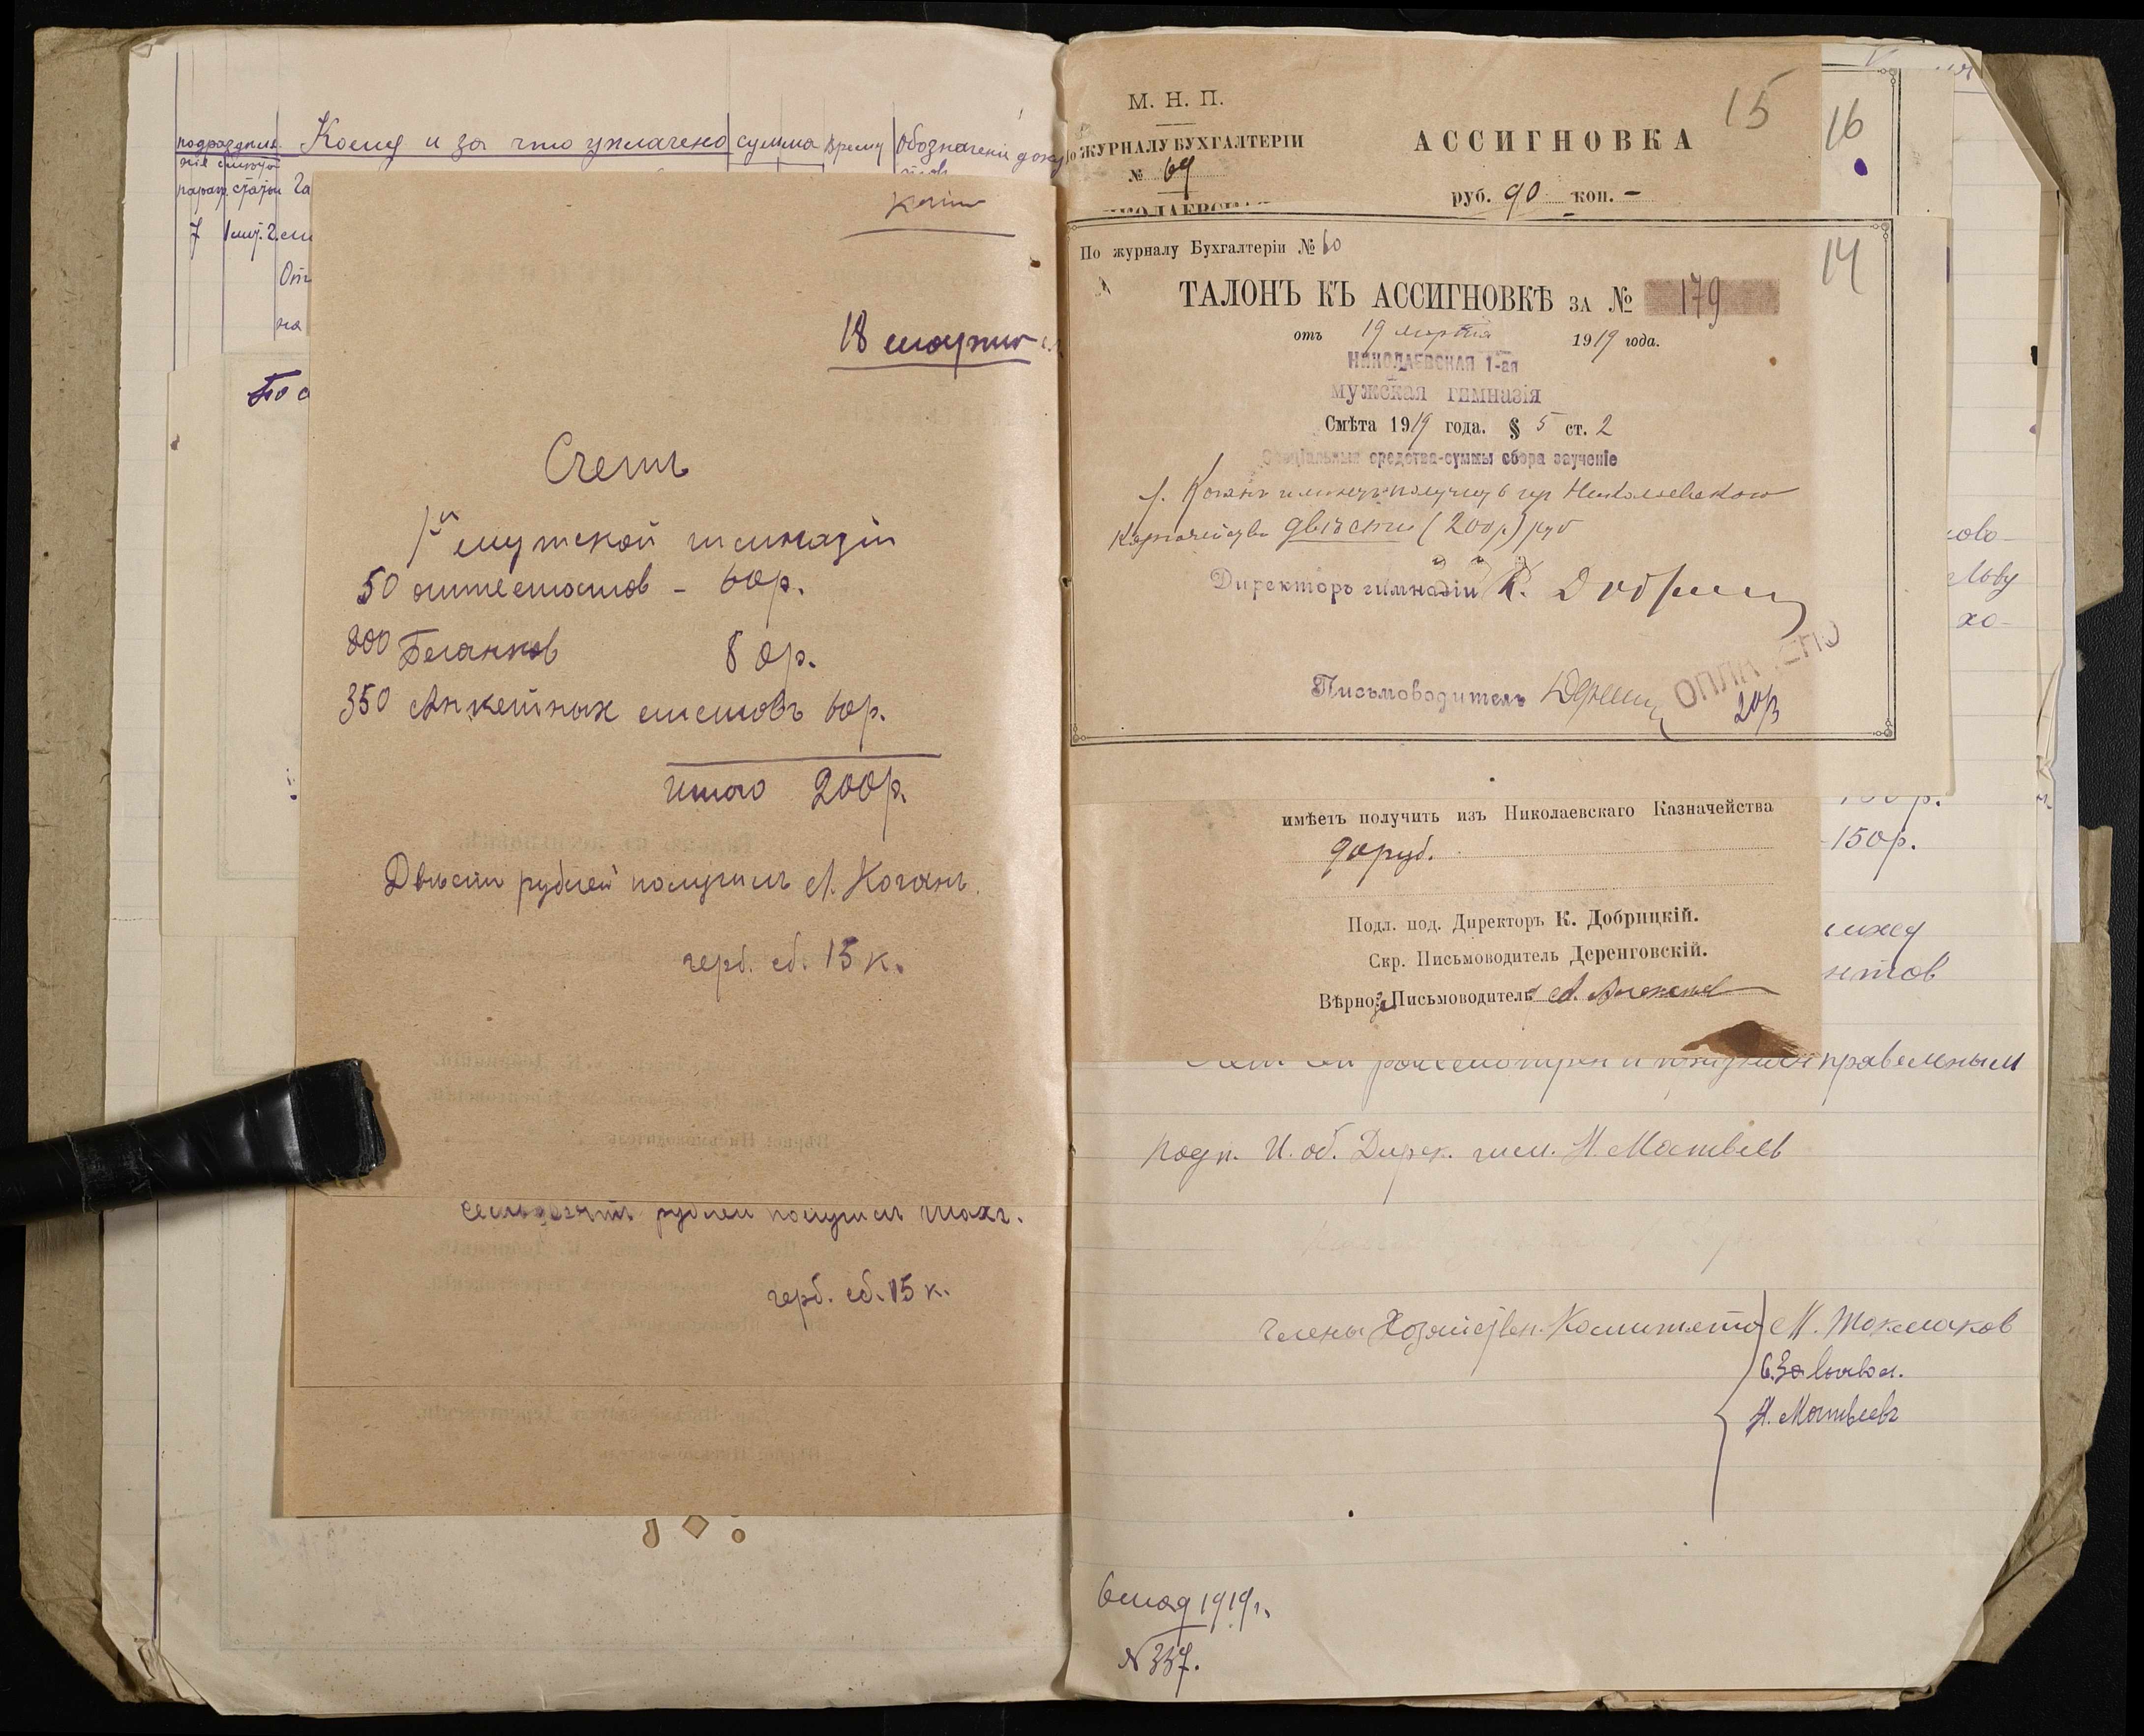 Кому и за что уплачено сумма Время Обозначенія
параг. статьи
7
на
Копия
18 марта
Счетъ
1й мужской гимназіи
50 аттестатов - 60р.
800 Бланков 80р.
350 Анкетных листовъ 60р.
Итого 200р.
Двѣсти рублей получилъ Л. Коганъ.
герб. сб. 15 к.
семьдесятъ рублей получилъ
герб. сб. 15 к.
М. Н. П.
ЖУРНАЛУ БУХГАЛТЕРІИ
№ 69
АССИГНОВКА
руб. 90 коп. -
15
16
По журналу Бухгалтеріи № 60
14
ТАЛОНЪ КЪ АССИГНОВКѢ ЗА № 179
отъ 19 марта 1919 года.
НИКОЛАЕВСКАЯ 1-ая
мужская гимназія
Смѣта 1919 года. § 5 ст. 2
Спеціальныя средства-суммы сбора заученіе
Коганъ имѣетъ получить Николаевскаго
Казначейства двѣсти (200р) руб
Директоръ гимназіи К.
Письмоводитель
ОПЛАЧЕНО
20/3
имѣетъ получить изъ Николаевскаго Казначейства
90 руб.
Подл. под. Директоръ К. Добрицкій.
Скр. Письмоводитель Деренговскій.
Вѣрно: Письмоводитель
150р.
нтов
правильным
подп. И. об. Дирек. гим. Н. Матвеев
Члены Хозяйствен. Комитета М. Токмаков
Н. Матвеевъ
6 мая 1919 г.
№ 337.